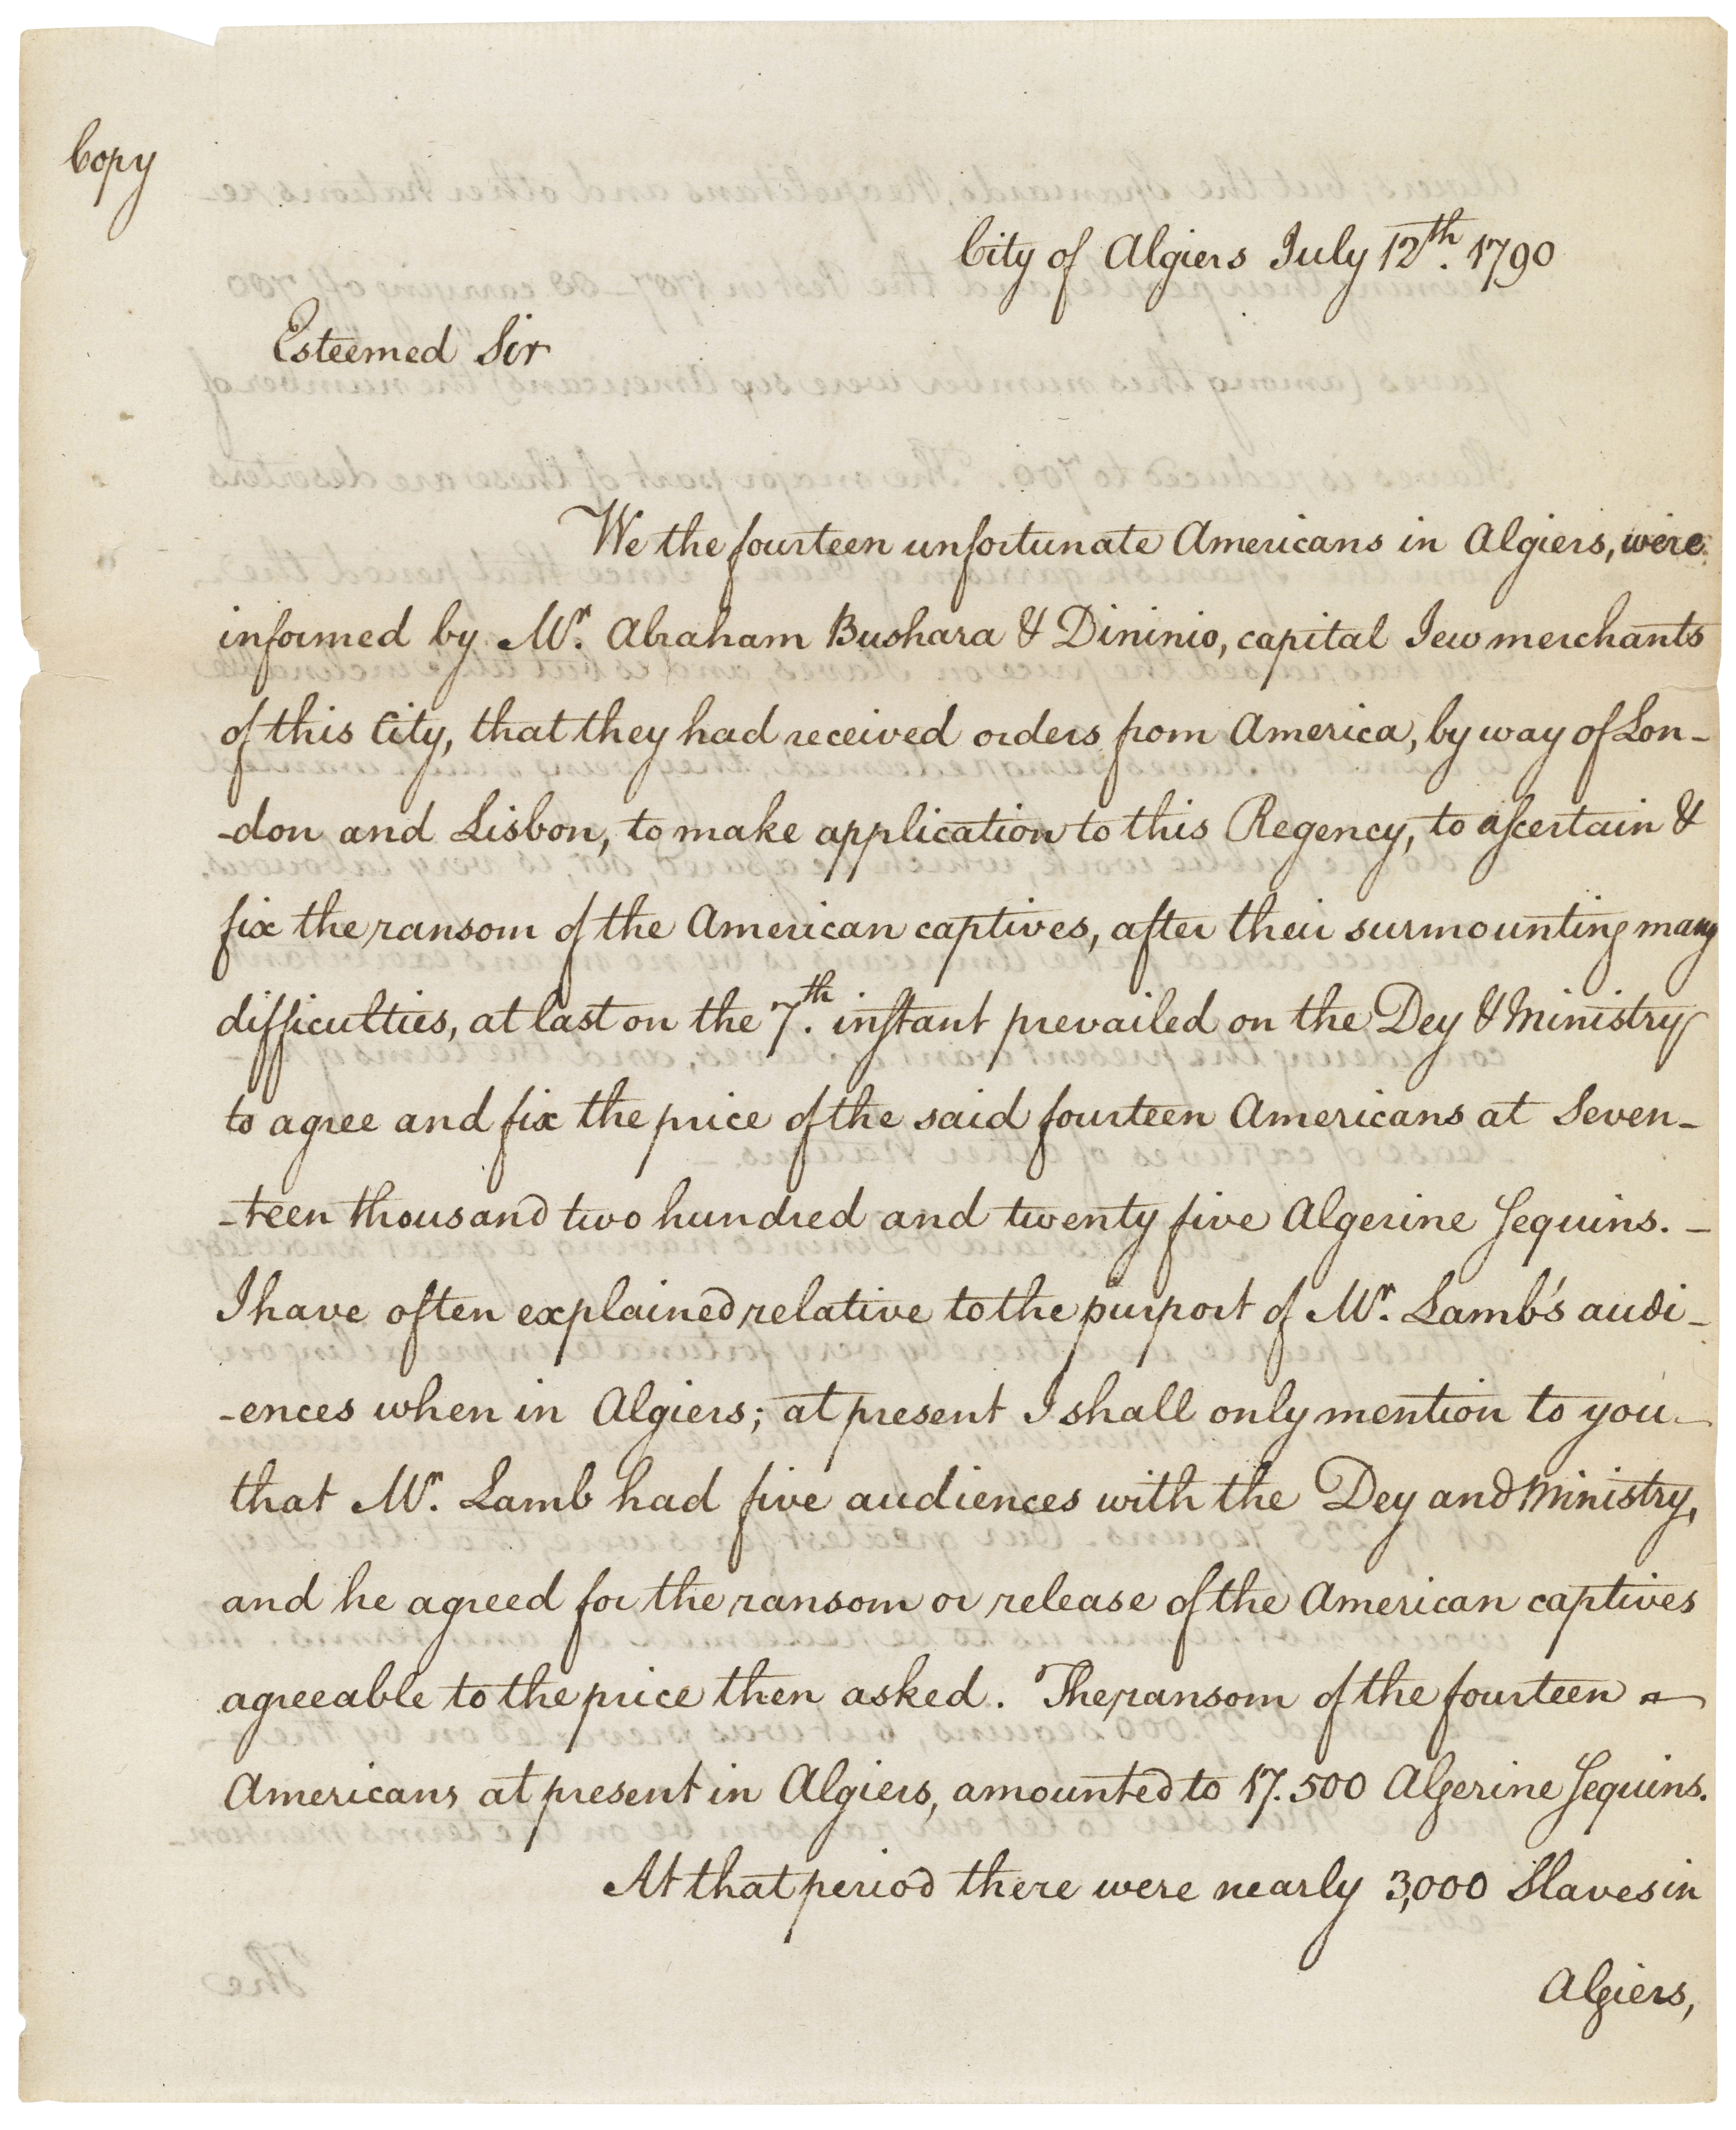 Copy
City of Algiers July 12th. 1790
Esteemed Sir
We the fourteen unfortunate Americans in Algiers, were
informed by Mr. Abraham Bushara & Dininio, capital Jew merchants
of this City, that they had received orders from America, by way of Lon-
-don and Lisbon, to make application to this Regency, to ascertain &
fix the ransom of the American captives, after their surmounting many
difficulties, at last on the 7th. instant prevailed on the Dey & Ministry
to agree and fix the price of the said fourteen Americans at Seven-
-teen thousand two hundred and twenty five Algerine Sequins. -
I have often explained relative to the purport of Mr. Lamb's audi-
-ences when in Algiers; at present I shall only mention to you -
that Mr. Lamb had five audiences with the Dey and Ministry,
and he agreed for the ransom or release of the American captives
agreeable to the price then asked. The ransom of the fourteen
Americans at present in Algiers, amounted to 17.500 Algerine Sequins.
At that period there were nearly 3,000 Slaves in
Algiers,